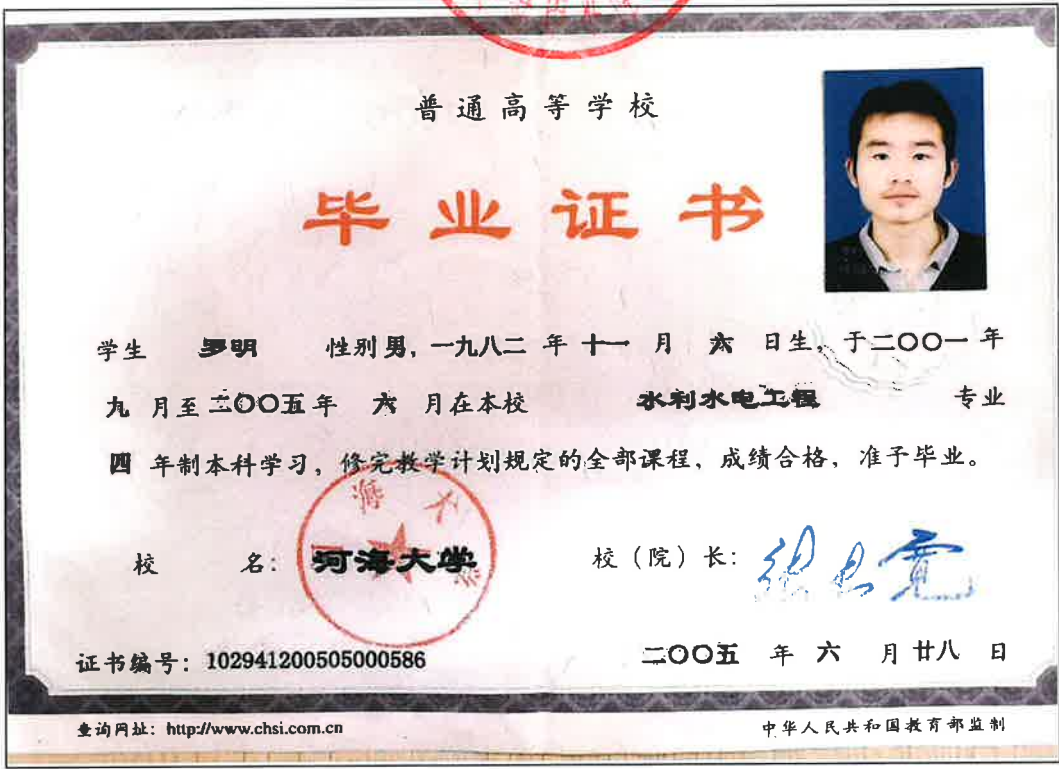 普通高等学校
毕业证书
学生 罗明 性别男，一九八二 年 十一 月 六 日生，于二〇〇一 年
九 月至 二〇〇五年 六 月在本校 水利水电工程 专业
四 年制本科学习，修完教学计划规定的全部课程，成绩合格，准予毕业。
校 名：河海大学 校（院）长：
证书编号：102941200505000586 二〇〇五 年 六 月 廿八 日
查询网址：http://www.chsi.com.cn 中华人民共和国教育部监制